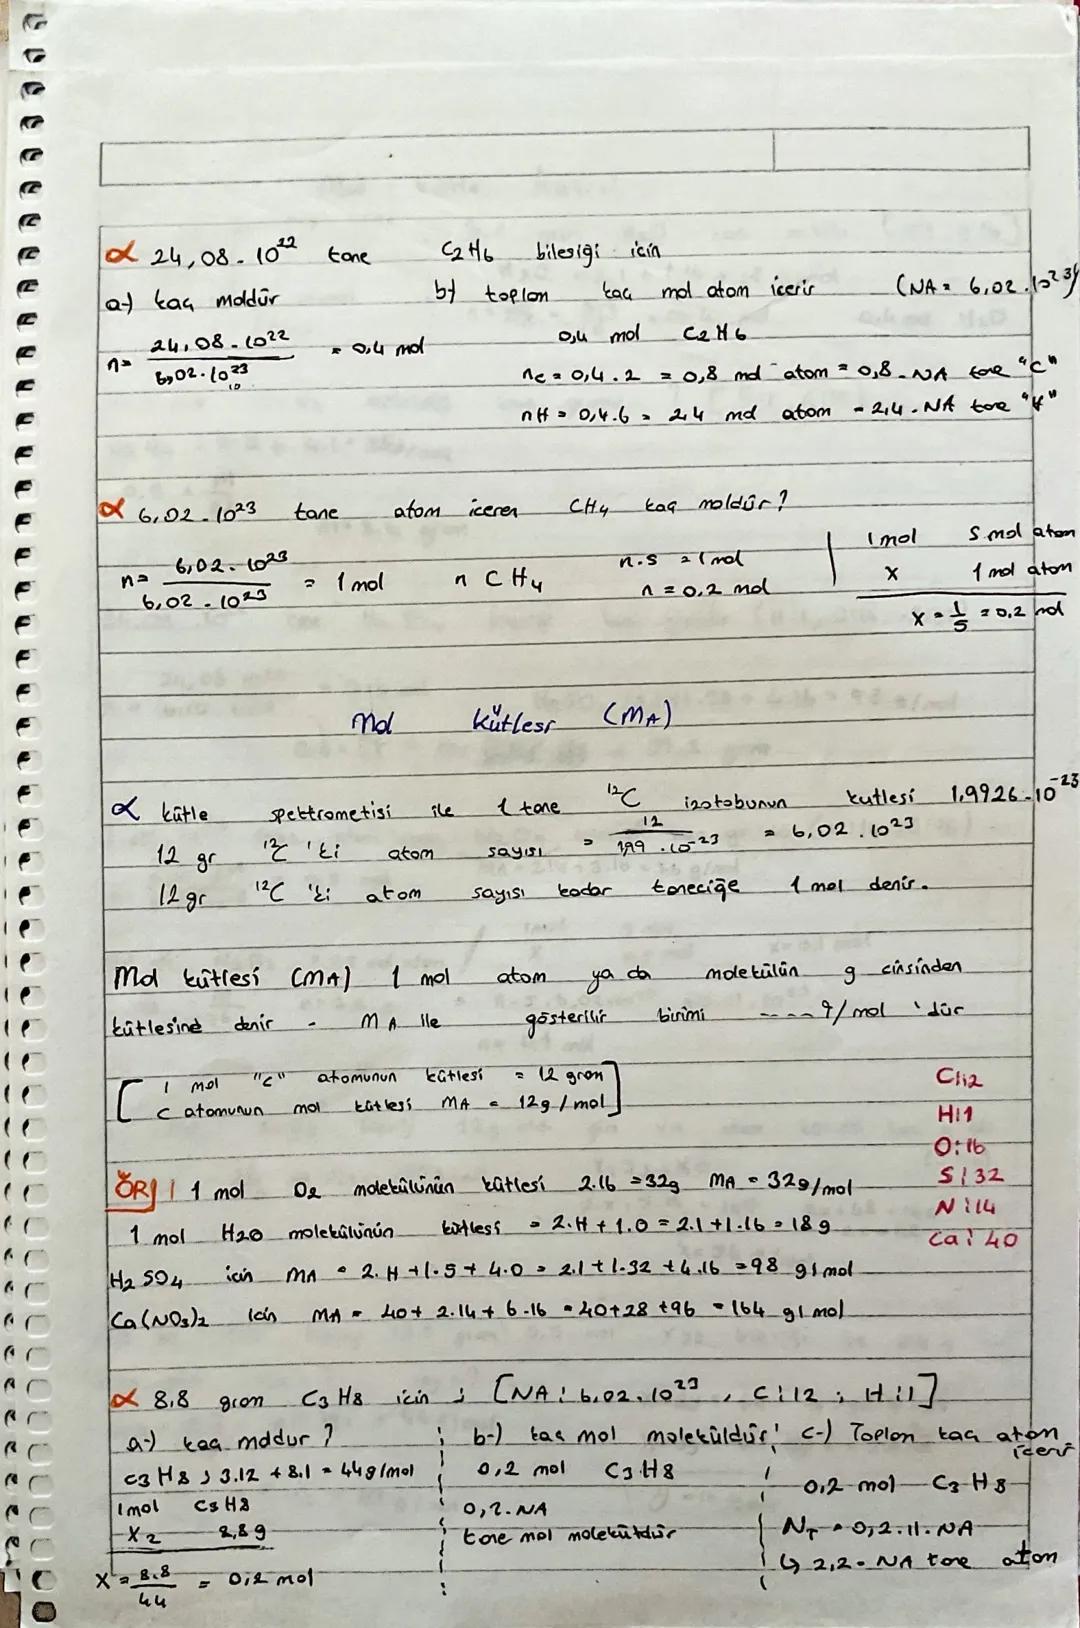 α 24,08.10²² tane C₂H₆ bileşiği için
a-) kaç moldür b-) toplam kaç mol atom içerir (NA = 6,02.10²³)
n= 24,08.10²² / 6,02.10²³ = 0,4 mol 0,4 mol C₂H₆
10
nc = 0,4.2 = 0,8 mol atom = 0,8.NA tane "C"
nH = 0,4.6 = 2,4 mol atom = 2,4.NA tane "H"
α 6,02.10²³ tane atom içeren CH₄ kaç moldür?
n= 6,02.10²³ / 6,02.10²³ = 1 mol n CH₄ n.5 = 1 mol
n = 0,2 mol
1 mol 5 mol atom
x 1 mol atom
x = 1/5 = 0,2 mol
Mol Kütlesi (MA)
α kütle spektrometisi ile 1 tane ¹²C izotobunun kutlesi 1,9926.10⁻²³
12 gr ¹²C 'ki atom sayısı = 12 / 1,99.10⁻²³ = 6,02.10²³
12 gr ¹²C 'ki atom sayısı kadar taneciğe 1 mol denir.
Mol kütlesi (MA) 1 mol atom ya da molekülün g cinsinden
kütlesine denir. MA ile gösterilir birimi ---- g/mol 'dür
[1 mol "C" atomunun kütlesi = 12 gram
C atomunun mol kütlesi MA = 12g/mol]
C:12
H:1
O:16
S:32
N:14
Ca:40
ÖR 1 mol O₂ molekülünün kütlesi 2.16 =32g MA = 32g/mol
1 mol H₂O molekülünün kütlesi = 2.H + 1.O = 2.1 +1.16 = 18 g
H₂SO₄ için MA = 2.H +1.S + 4.O = 2.1 + 1.32 +4.16 =98 g/mol
Ca(NO₃)₂ için MA = 40+ 2.14 + 6.16 = 40+28 +96 = 164 g/mol
α 8,8 gram C₃H₈ için ; [NA: 6,02.10²³ , C:12 ; H:1]
a-) kaç moldur?
C₃H₈ ; 3.12 +8.1 = 44g/mol
1mol C₃H₈
x 8,8 g
x = 8,8 / 44 = 0,2 mol
b-) kaç mol moleküldür?
0,2 mol C₃H₈
0,2.NA
tane mol moleküldür
c-) Toplam kaç atom
içerir
0,2 mol C₃H₈
N_T = 0,2.11.NA
↳ 2,2.NA tane atom